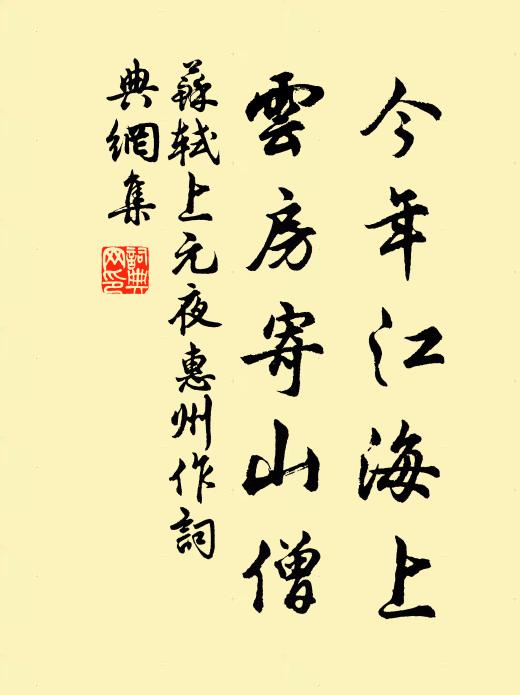 今年江海上
雲房寄山僧
蘇軾上元夜惠州作詞
典網集
詞典网印